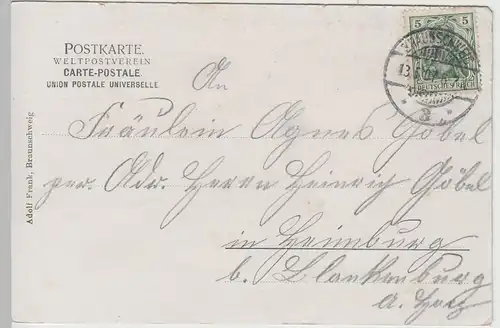 POSTKARTE.
WELTPOSTVEREIN
CARTE-POSTALE.
UNION POSTALE UNIVERSELLE.
5 5
DEUTSCHES REICH
BRAUNSCHWEIG
An
Fräulein Agnes Göbel
per. Adr. Herrn Heinrich Göbel
in Heimburg
b. Blankenburg
a. Harz
Adolf Frank, Braunschweig